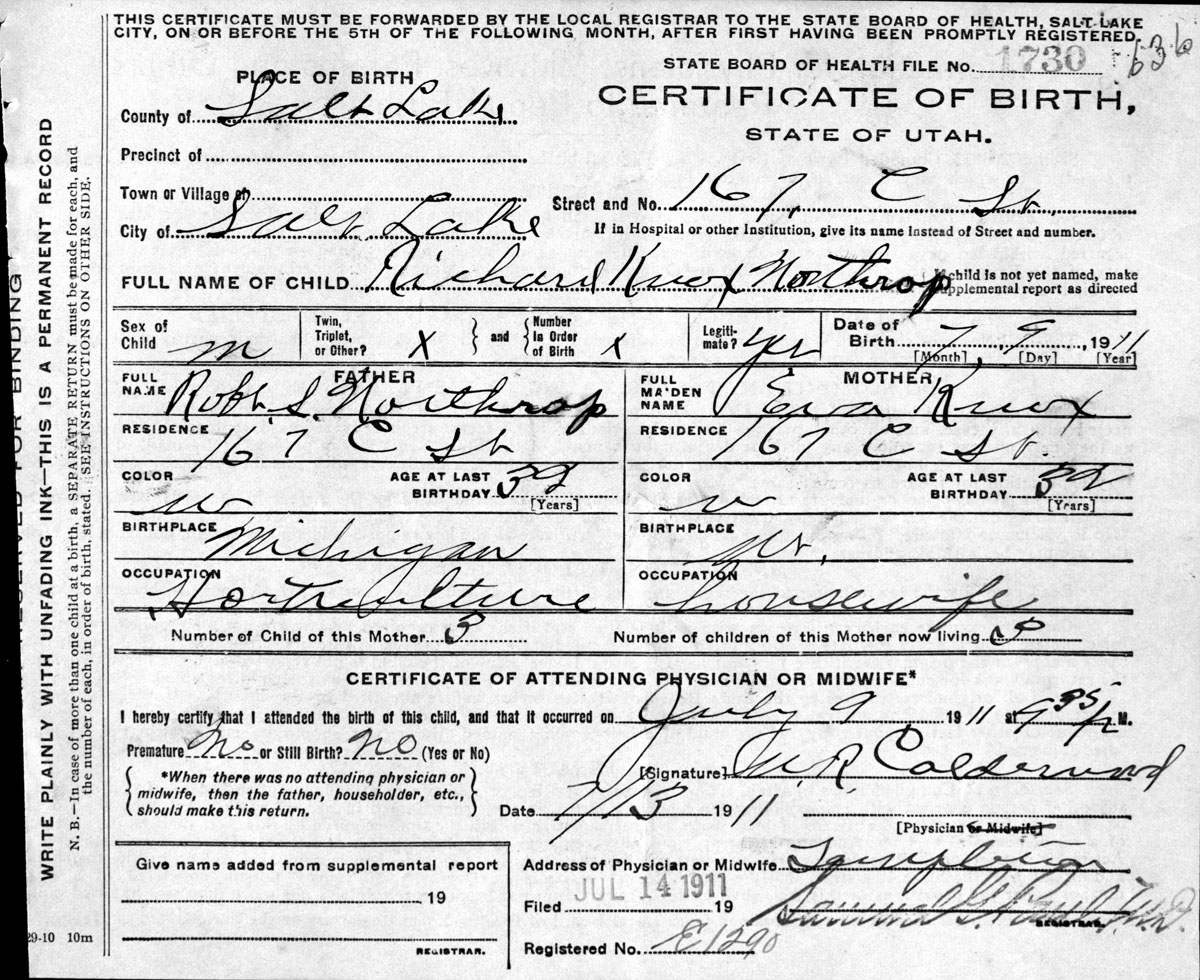 THIS CERTIFICATE MUST BE FORWARDED BY THE LOCAL REGISTRAR TO THE STATE BOARD OF HEALTH, SALT LAKE
CITY, ON OR BEFORE THE 5TH OF THE FOLLOWING MONTH, AFTER FIRST HAVING BEEN PROMPTLY REGISTERED.
636
STATE BOARD OF HEALTH FILE No. 1730
PLACE OF BIRTH
CERTIFICATE OF BIRTH,
STATE OF UTAH.
County of Salt Lake
Precinct of
Town or Village of
Street and No. 167 C St.
City of Salt Lake
If in Hospital or other Institution, give its name instead of Street and number.
FULL NAME OF CHILD Richard Knox Northrop
If child is not yet named, make
supplemental report as directed
Sex of Child m
Twin, Triplet, or Other? X and Number In Order of Birth x
Legiti-mate? yes
Date of Birth 7, 9, 1911
[Month] [Day] [Year]
FATHER
FULL NAME Robt. S. Northrop
MOTHER
FULL MAIDEN NAME Eva Knox
RESIDENCE 167 C St
RESIDENCE 167 C St.
COLOR w
AGE AT LAST BIRTHDAY 39 [Years]
COLOR w
AGE AT LAST BIRTHDAY [Years]
BIRTHPLACE Michigan
BIRTHPLACE
OCCUPATION Horticulture
OCCUPATION housewife
Number of Child of this Mother 3
Number of children of this Mother now living 3
CERTIFICATE OF ATTENDING PHYSICIAN OR MIDWIFE*
I hereby certify that I attended the birth of this child, and that it occurred on July 9 1911 at 9 35 P M.
Premature No or Still Birth? No (Yes or No)
*When there was no attending physician or
midwife, then the father, householder, etc.,
should make this return.
[Signature] W.R. Calderwood
Date 7/13 1911
[Physician or Midwife]
Give name added from supplemental report
19
REGISTRAR.
Address of Physician or Midwife Templeton
Filed JUL 14 1911 19
Samuel G. Paul, M.D.
REGISTRAR.
Registered No. E1290
29-10 10m
RESERVED FOR BINDING
WRITE PLAINLY WITH UNFADING INK—THIS IS A PERMANENT RECORD
N. B.—In case of more than one child at a birth, a SEPARATE RETURN must be made for each, and
the number of each, in order of birth, stated. SEE INSTRUCTIONS ON OTHER SIDE.